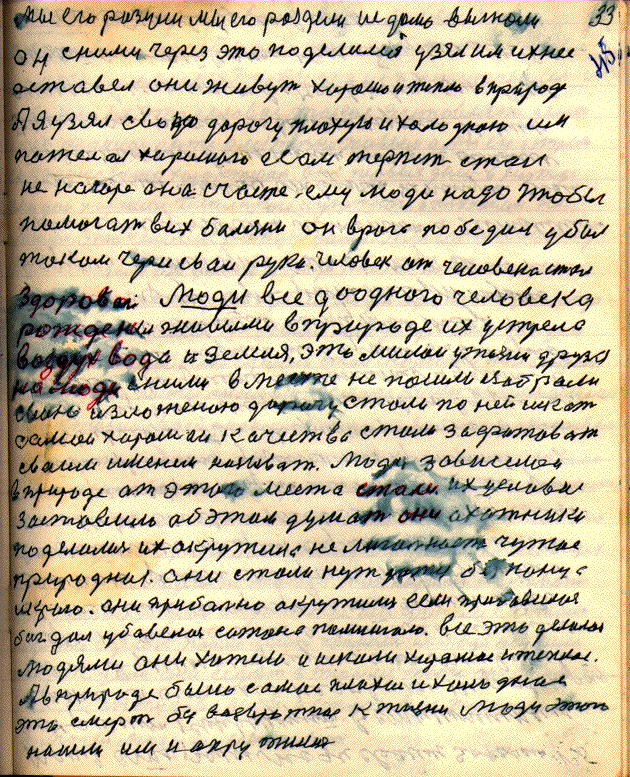 мы его разули мы его раздели из дома выгнали 33
он сними через это поделился узял им ихнее
оставел они живут хорошо и тепло в природ
А я узял свою дорогу плохую и холодною им
пожелал харошого а сам терпит стал
не на горе а на счасте ему люди надо чтобы
помогат вих болезни он врага победил убил
током через свои руки. человек от человека стал
здоровои Люди все до одного человека
рождены жившими в природе их устрело
воздух вода и земля, это милои утехи друзя
на люди сними в месте не пошли избрали
свою изложеною дорогу стали по неи искат
самои харошои качества стали захватоват
своим именем называт. Люди зависемои
в природе от этого места стали их условие
заставило об этом думат они охотники
поделался их окружила не законност чужое
природное. они стали нуждатся
они прибалено окружили если прибавился
бог дал убавелся сотона помешало. все это делалос
людями они хотели и искали хорошое и теплое.
А в природе было самое плохое и холодное
это смерт бу возвратное к жизни люди этого
нашли им и окружили